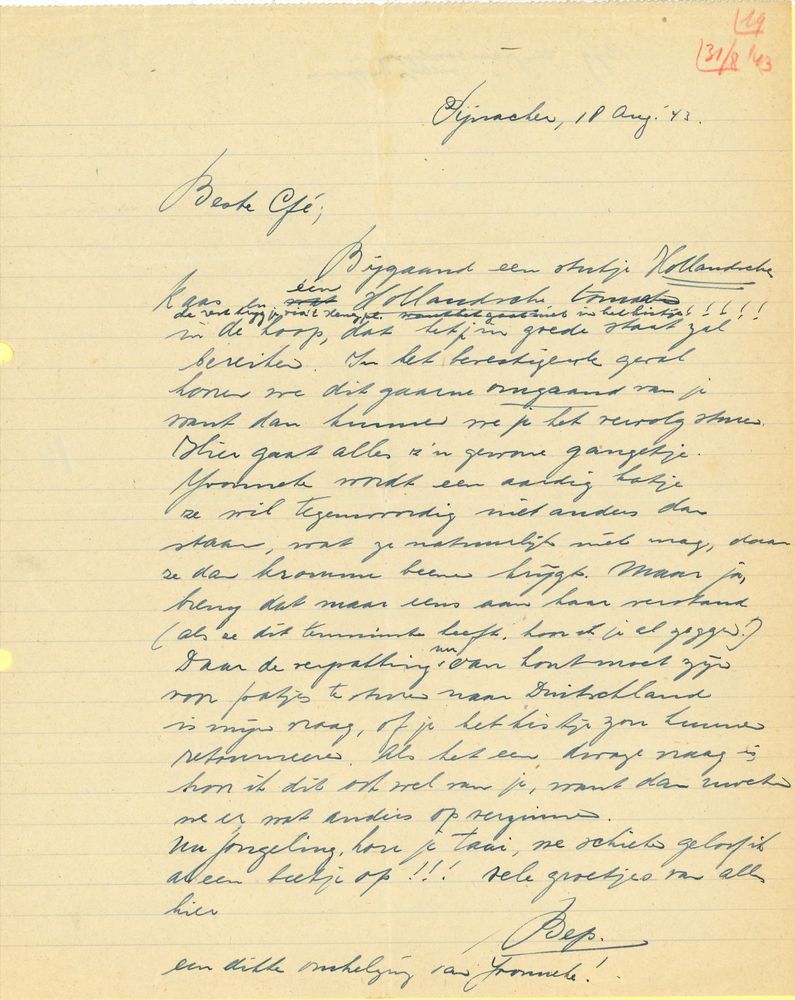 19
31/8 '43
Pijnacker, 18 Aug. '43.
Beste Cfé,
Bijgaand een stukje Hollandsche
Kaas en wat één Hollandsche tomaat
de rest krijg je via 't want het gaat niet in het kistje!!!!!
in de hoop, dat het je in goede staat zal
bereiken. In het bevestigende geval
horen we dit gaarne omgaand van je
want dan kunnen we je het vervolg sturen.
Hier gaat alles z'n gewone gangetje.
Yvonneke wordt een aardig hatje
ze wil tegenwoordig niet anders dan
staan, wat ze natuurlijk niet mag, daar
ze dan kromme benen krijgt. Maar ja,
breng dat maar eens aan haar verstand
(als ze dit tenminste heeft, hoor ik je al zeggen!)
Daar de verpakking nu van hout moet zijn
voor pakjes te sturen naar Duitschland
is mijn vraag, of je het kistje zou kunnen
retourneeren. Als het een dwaze vraag is
hoor ik dit ook wel van je, want dan moeten
we er wat anders op verzinnen.
Nu jongeling, hou je taai, we schieten geloof ik
al een beetje op!!! Vele groetjes van allen
hier
Bep.
een dikke omhelzing van Yvonneke!